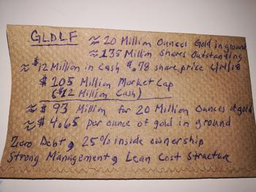 GLDLF ≈ 20 Million Ounces Gold in ground
≈ 135 Million Shares Outstanding
≈ $12 Million in Cash $.78 share price 4/4/18
$105 Million Market Cap
($12 Million Cash)
≈ $93 Million for 20 Million Ounces of gold
≈ $4.65 per ounce of gold in ground
Zero Debt, 25% inside ownership
Strong Management, Lean Cost Structure